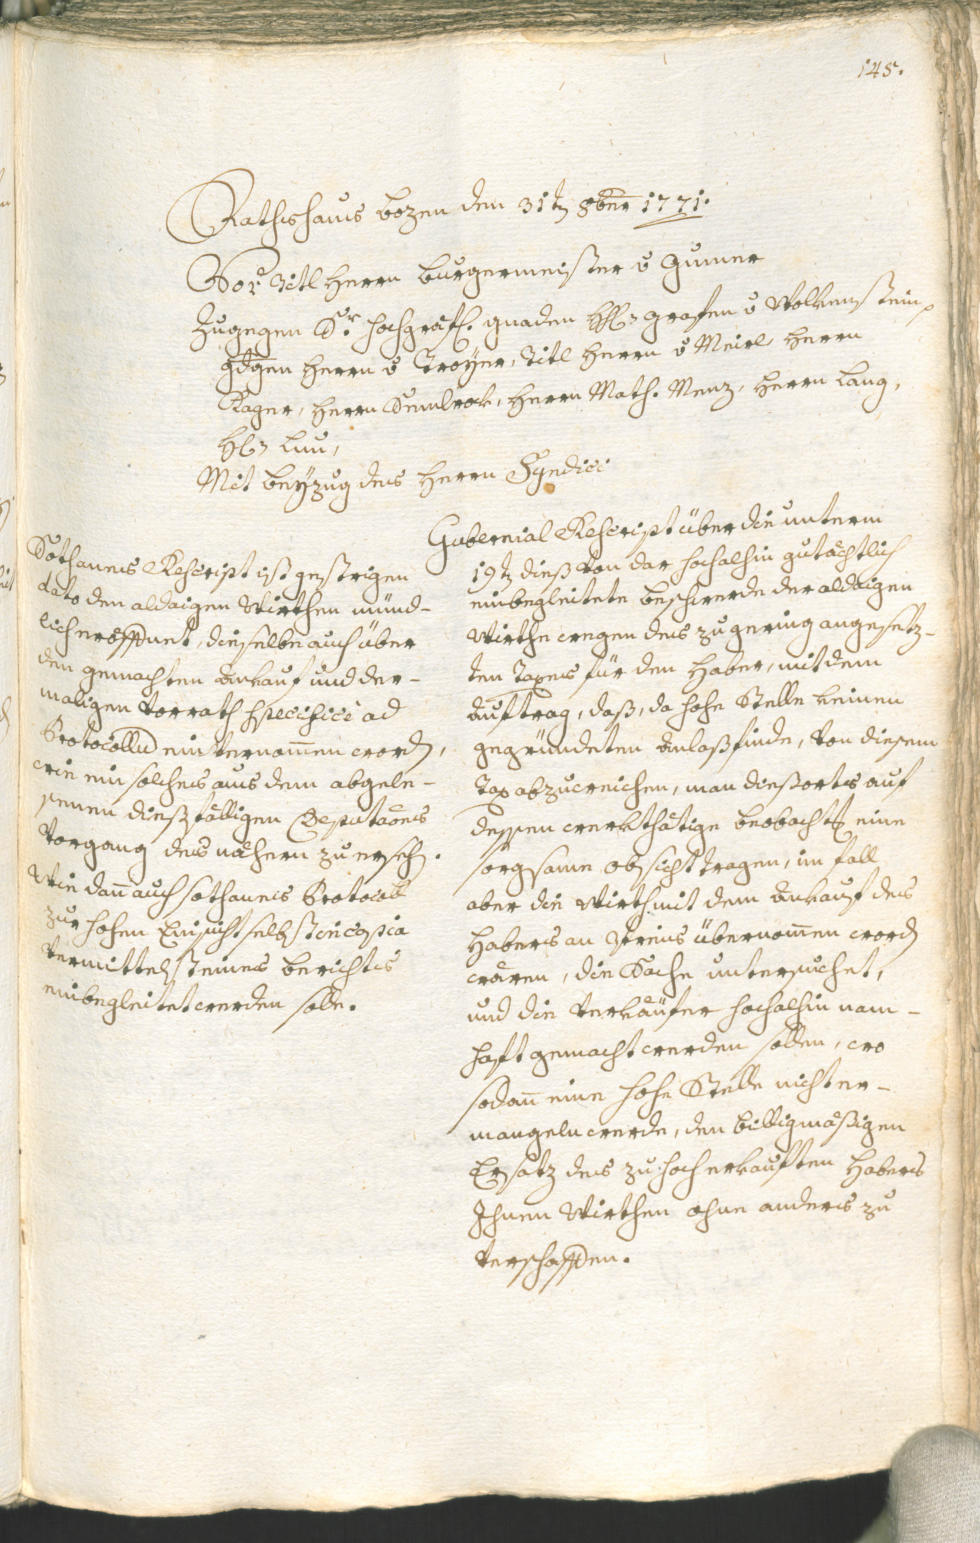 145.
Rathshaus Bozen den 31t 8ber 1771.
Vor Titl Herrn Burgermeister v Gumer
zugegen Sr. hochgräfl. gnaden H: grafen v Wolkenstein
Herrn v Troyer, Titl Herrn v Meirl, Herrn
Rager, Herrn Semlrok, Herrn Math. Menz, Herrn Lang,
H: Luu,
Mit beÿzug des Herrn Syndici
Gubernial Rescript über die unterm
19t dieß von dar hochalhin gutächtlich
einbegleitete beschwerde der aldaigen
Wirthe wegen des zu gering angesetz-
ten Taxes für den Haber, mit dem
Auftrag, daß, da hohe Stelle keinen
gegründeten Anlaß finde, von diesem
Tax abzuweichen, man dießorts auf
dessen werkthätige beobacht eine
sorgsame obsicht tragen, im fall
aber die Wirth mit dem Ankauf des
Habers an Preis übernomen word
wären, die Sache untersuchet,
und die Verkäufer hochalhin nam-
haft gemacht werden sollen, wo
sodan eine hohe Stelle nicht er-
manglen werde, den billigmäßigen
Ersatz des zu hoch erkauften Habers
Ihnen Wirthen ohne anders zu
verschaffen.
Sothanes Rescript ist gestrigen
dato den aldaigen Wirthen münd-
lich eröffnet, dieselbe auch über
den gemachten Ankauf und der-
maligen Vorrath specificè ad
Protocollu einvernomen word,
wie ein solches aus dem abgele-
senen dießfälligen Deputaons
Vorgang des nähern zu erseh.
Wie dan auch sothanes Protocoll
zur hohen Einsicht selbst in copia
vermittelst eines berichts
einbegleitet werden solle.